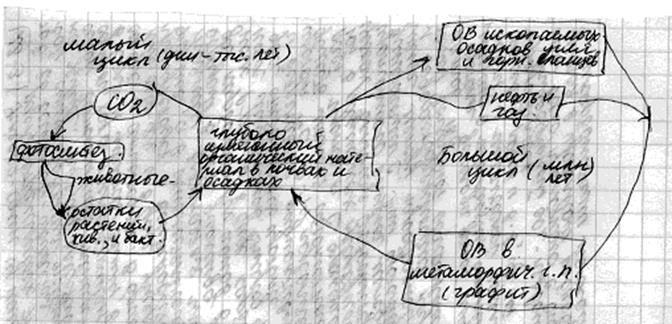 малый
цикл (дни-тыс. лет)
CO2
фотосинтез.
животные-
остатки
растений,
жив., и бакт.
глубоко
органический мате-
риал в почвах и
осадках
ОВ ископаемых
осадков угля
и горн. сланцев
нефть и
газ.
Большой
цикл (млн
лет)
ОВ в
метаморфич. г.п.
(графит)